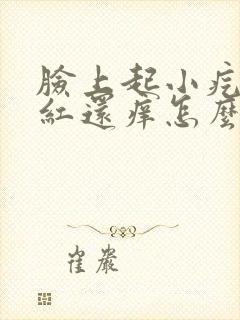 臉上起小疙
紅還癢怎麼
崔巖